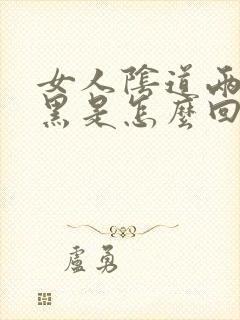 女人陰道兩
黑是怎麼回
盧勇